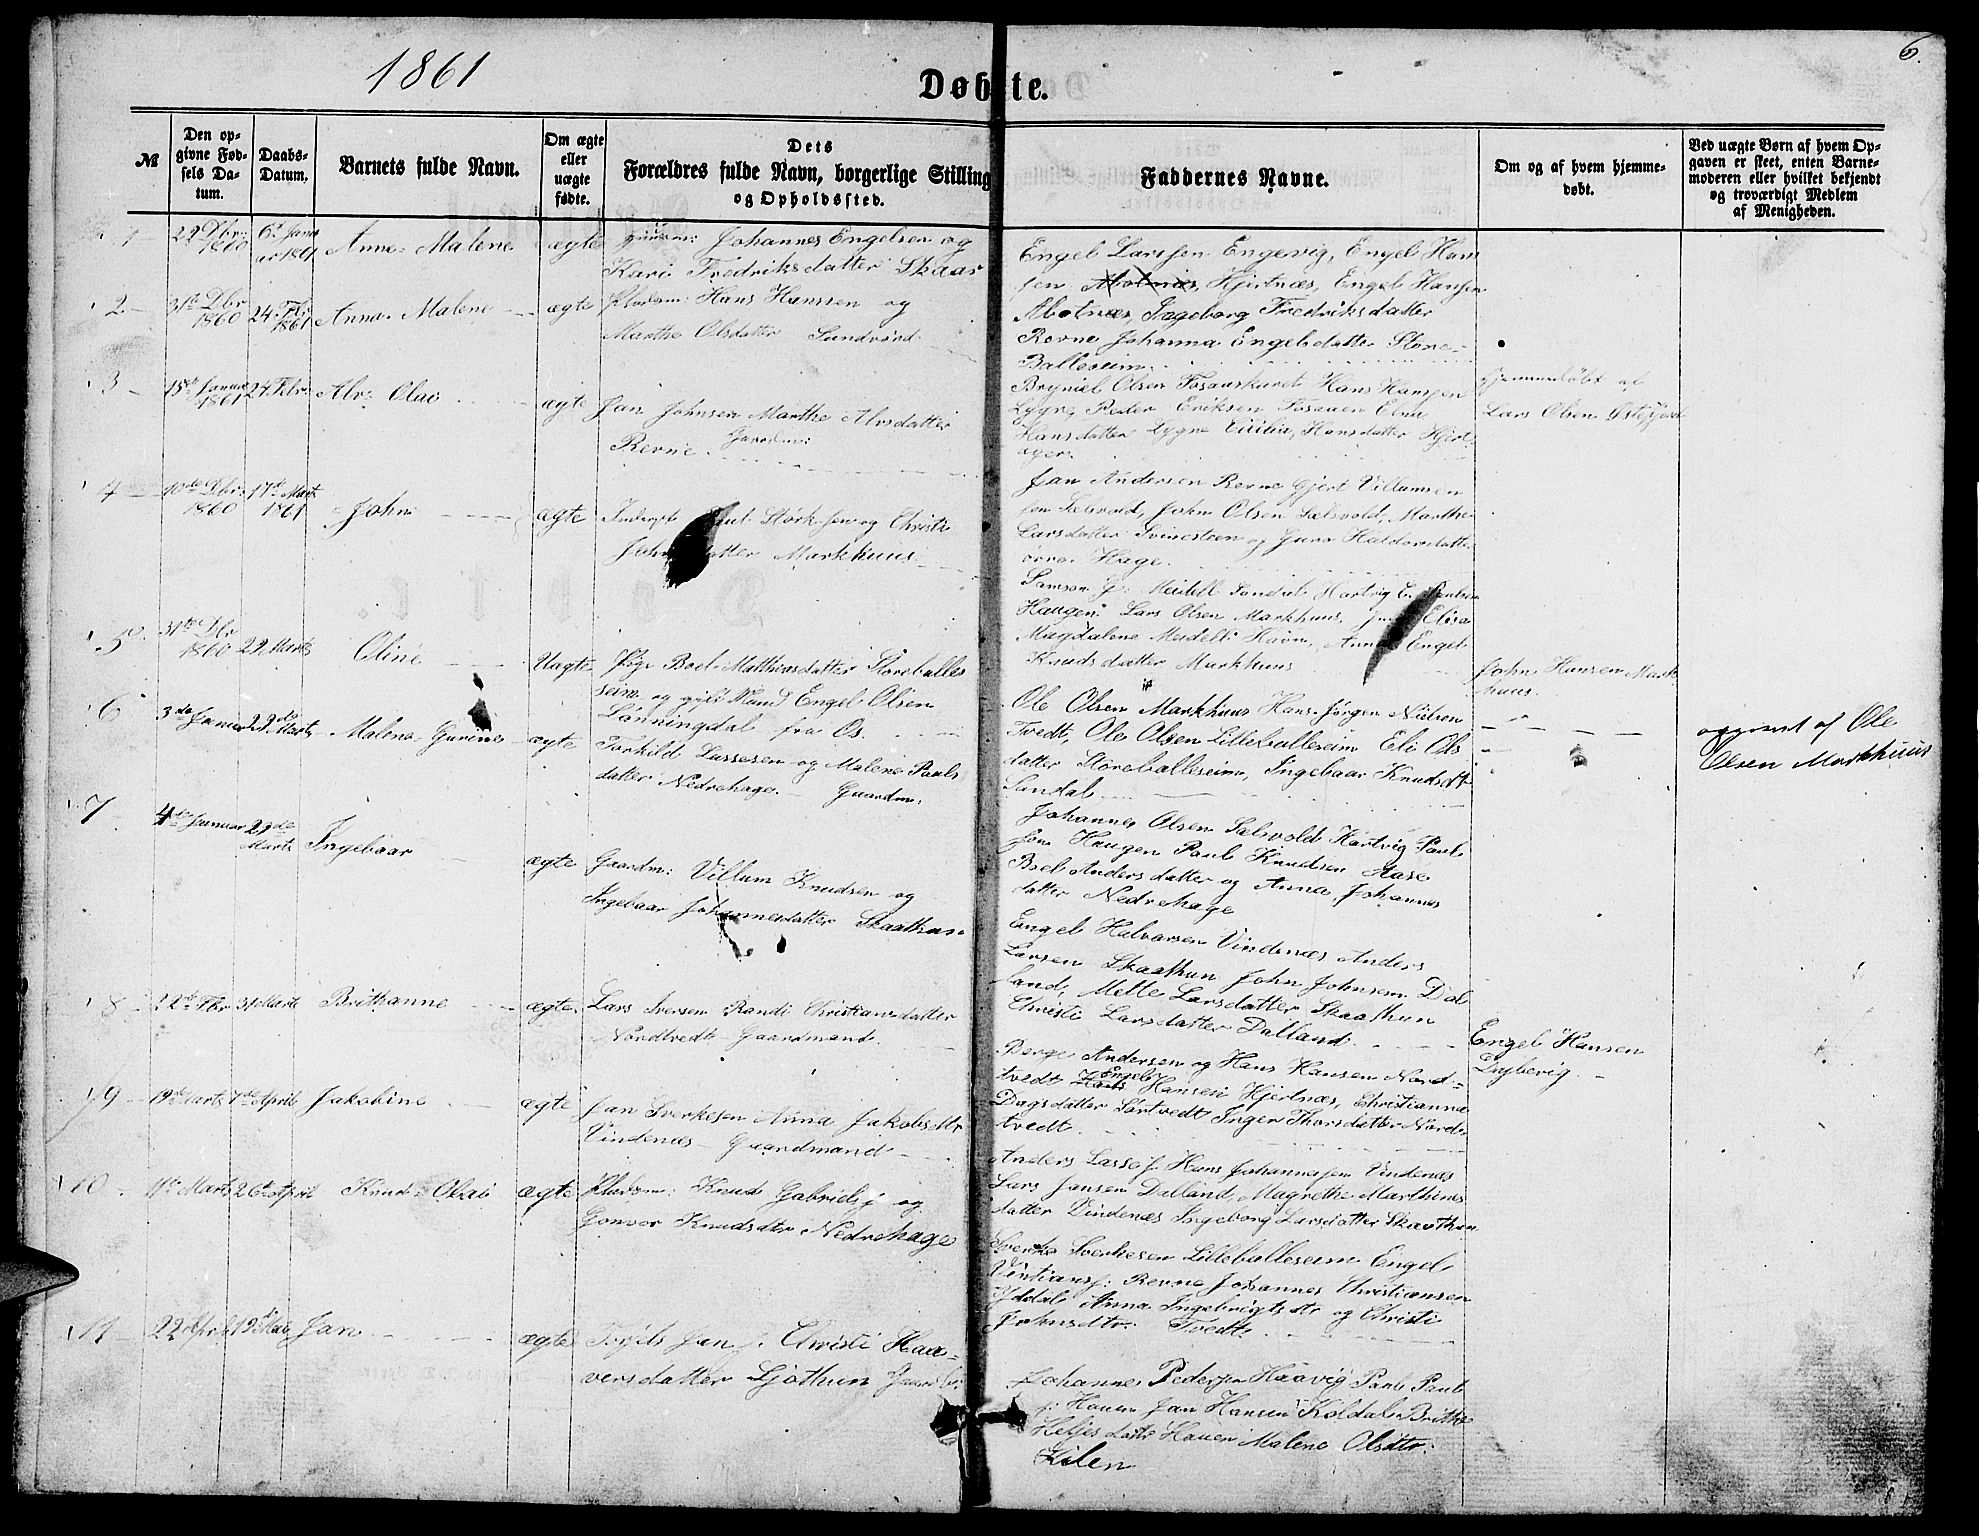 1861
6.
Døbte.
№
Den opgivne Fødsels Datum.
Daabs-Datum.
Barnets fulde Navn.
Om ægte eller uægte fødte.
Dets Forældres fulde Navn, borgerlige Stilling og Opholdssted.
Faddernes Navne.
Om og af hvem hjemmedøbt.
Ved uægte Børn af hvem Opgaven er skeet, enten Barnemoderen eller hvilket bekjendt og troværdigt Medlem af Menigheden.
1 Anne Malene ægte Johannes Engelsen og
Kari Fredriksdatter Skaar
Engel Larssen Engevig, Engel Hans
sen Hjertnæs, Engel Hansen
Ingeborg Fredriksdatter
Revne Johanna Engelsdatter Store
Balleseim.
2 31te Dbr 1860 24 Fbr 1861 Anna Malene ægte Hans Hanssen og
Marthe Olsdatter Sundvord
3 15de Januar 1861 24 Febr Alv Olai ægte Jan Johnsen Marthe Alvsdatter
Revne Gaardm:
Bryniel Olsen Hans Hansen
Lygre, Peder Eriksen
Hansdatter Lygre Hansdatter
hjemmedøbt af
Lars Olsen
4 10de Dbr 1860 17de Mart 1861 John ægte
Markhuus
Jan Andersen Revne Gjert Villumsen
John Olsen Sælsvold, Marthe
Larsdatter Svinesteen og Guro Haldorsdatter
øvre Hage.
5 31te Dbr 1860 29 Marts Oline Uægte Pige Boel Matthiasdatter Storeballe
seim og gift Mand Engel Olsen
Lønningdal fra Os.
Haugen Lars Olsen Markhuus,
Magdalene Meidell
Knudsdatter Markhuus
John Hansen Mark
huus.
opgivet af Ole
Olsen Markhuus
6 3de Januar 29de Marts Malena Gurine ægte Torkild Lassesen og Malene Pauls
datter Nedrehage. Gaardm:
Ole Olsen Markhuus Hans Jørgen Nielsen
Tvedt, Ole Olsen Lilleballeseim Eli Ols
datter Storeballeseim, Ingebaar Knudsdt
Sandal
7 4de Januar 29de Marts Ingebaar ægte Gaardm: Villum Knudsen og
Ingebaar Johannesdatter Skaathun
Johannes Olsen Sælsvold Hartvig Paul
sen Haugen Paul Knudsen Aase
Boel Andersdatter og Anna Johannes
datter Nedrehage
8 12te Fbr 31 Marts Brithanne ægte Lars Iversen Randi Christiansdatter
Nordtvedt Gaardmand
Engel Halvorsen Vindenæs Anders
Larsen Skaathun John Johnsen Dal
land, Mette Larsdatter Skaathun
Christi Larsdatter Dalland.
Engel Hansen
Dybevig.
9 19de Marts 7de April Jakobine ægte Jan Sverkesen Anna Jakobsdtr
Vindenæs Gaardmand
Børge Andersen og Hans Hansen Nord
tvedt Engel Hansen Hjertnæs, Christianna
Dagsdatter Sørtvedt Inger Thorsdatter Nord
tvedt
10 11te Marts 26de April Knud Olai ægte Knud Gabriels og
Gonvor Knudsdtr Nedrehage
Anders Lasses. Hans Johannessen Vindenæs
Lars Jansen Dalland, Magrethe Marthines
datter Vindenæs Ingeborg Larsdatter Skaathun
11 22 April 19de Mai Jan ægte Christi Haa
versdatter Ljothun
Sverke Sverkesen Lilleballeseim Engel
Revne Johannes Christiansen
Anna Ingebrigtsdtr og Christi
Johnsdtr Tvedt
Johannes Pedersen Haavig Paul Paul
s: Hauen Jan Hansen Koldal Britha
Heljesdatr Hauen Malene Olsdtr:
Kilen